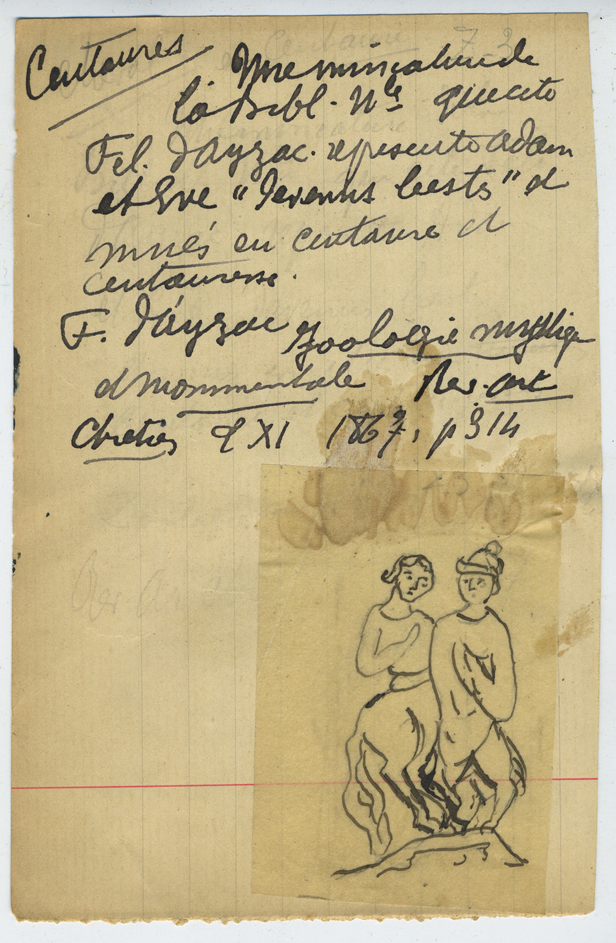 Centaures
Une miniature de
la Bibl. Nle que cite
Fel. d'Ayzac. représente adam
et Eve "devenus bestes" et
mués en centaure et
centauresse.
F. d'Ayzac Zoologie mystique
et monumentale Rev. art
Chretien XI 1867, p 314